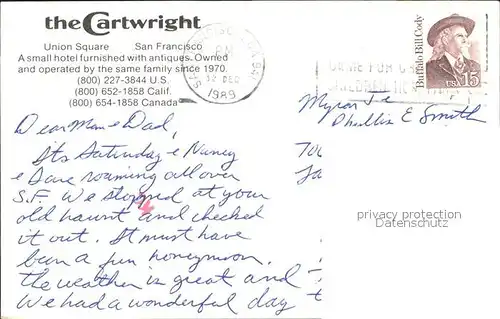 the Cartwright
Union Square San Francisco
A small hotel furnished with antiques. Owned
and operated by the same family since 1970.
(800) 227-3844 U.S.
(800) 652-1858 Calif.
(800) 654-1858 Canada
PM
DEC
1989
Buffalo Bill Cody
USA 15
Dear Mom & Dad,
Its Saturday & Nancy
& I are roaming all over
S.F. We stopped at your
old haunt and checked
it out. It must have
been a fun honeymoon.
the weather is great and
We had a wonderful day
Phyllis E Smith
privacy protection
Datenschutz